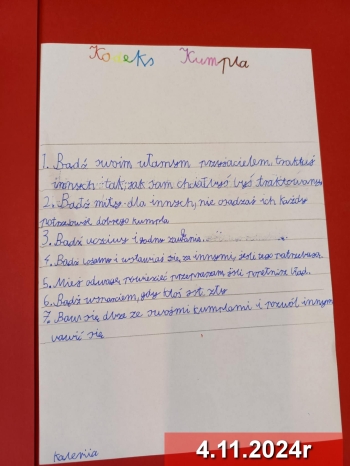 Kodeks Kumpla
1. Bądź swoim własnym przyjacielem, traktuj
innych tak, jak sam chciałbyś być traktowany
2. Bądź miły dla innych, nie osądzaj ich każdy
potrzebował dobrego kumpla
3. Bądź uczciwy i godny zaufania.
4. Bądź i wstawiaj się za innymi, jeśli tego potrzebują.
5. Miej odwagę powiedzieć przepraszam jeśli popełnisz błąd.
6. Bądź wsparciem, gdy ktoś jest zły
7. Baw się dbze ze swoimi kumplami i pozwól innym
bawić się
4.11.2024r